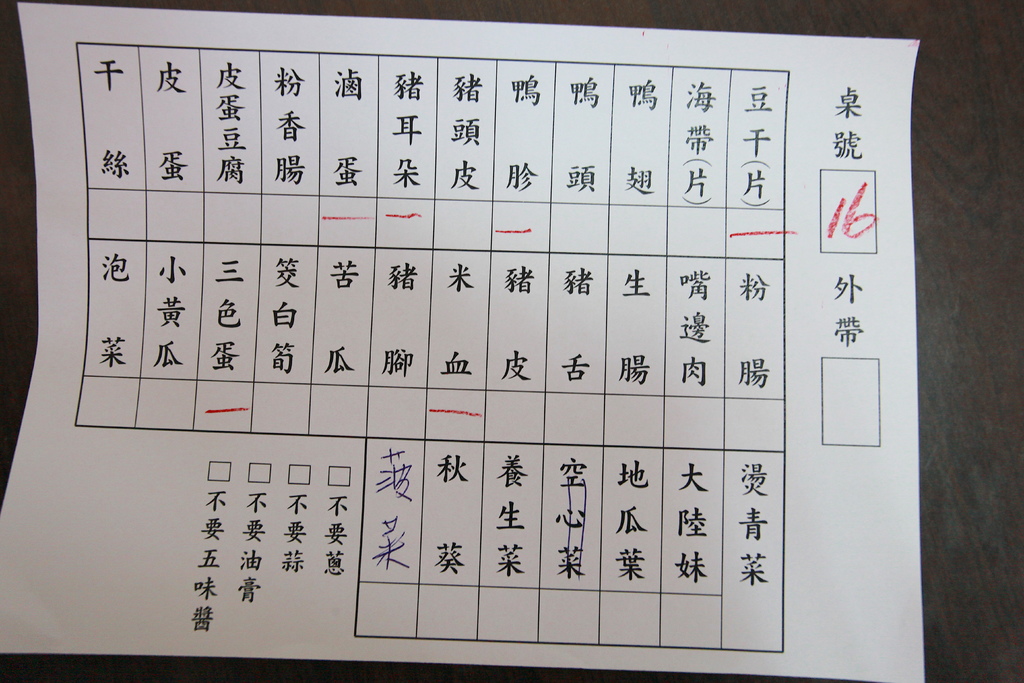 桌號 16
外帶
豆干(片) 一
海帶(片)
鴨翅
鴨頭
鴨胗 一
豬頭皮
豬耳朵 一
滷蛋 一
粉香腸
皮蛋豆腐
皮蛋
干絲
粉腸
嘴邊肉
生腸
豬舌
豬皮
米血 一
豬腳
苦瓜
筊白筍
三色蛋 一
小黃瓜
泡菜
燙青菜
大陸妹
地瓜葉
空心菜
養生菜
秋葵
菠菜
□不要蔥
□不要蒜
□不要油膏
□不要五味醬